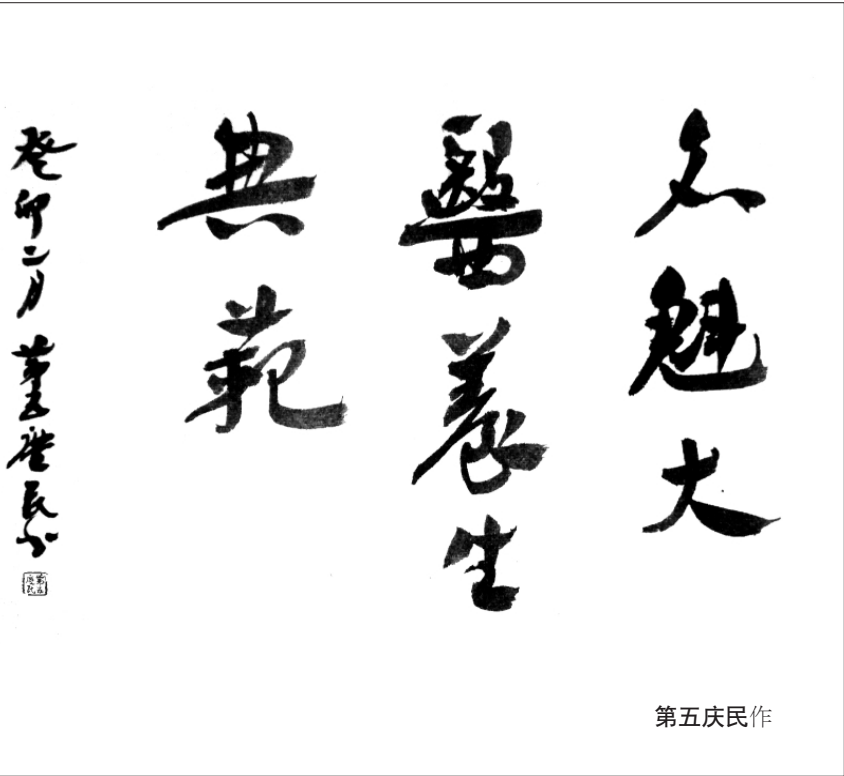 文魁大
醫養生
典範
癸卯二月 第五慶民书
第五庆民作